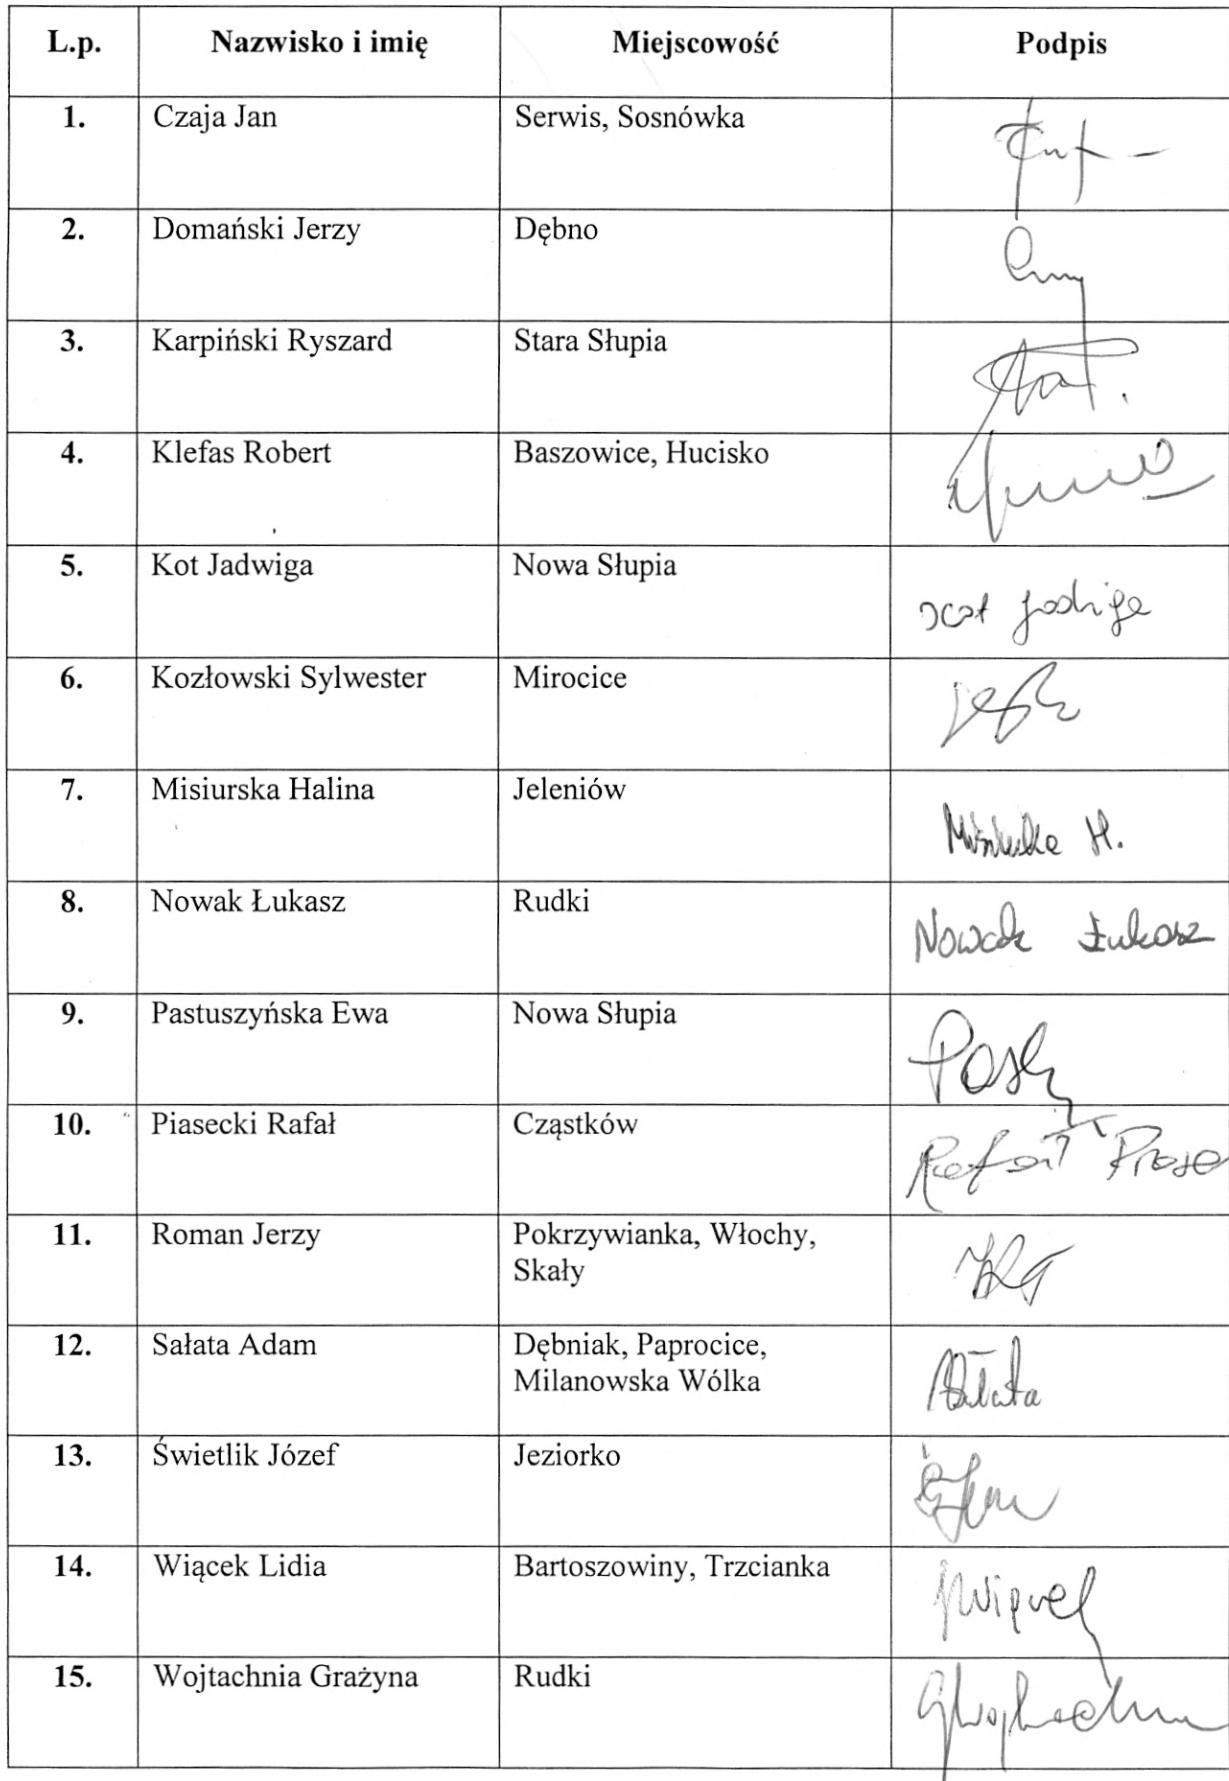 L.p. Nazwisko i imię Miejscowość Podpis
1. Czaja Jan Serwis, Sosnówka
2. Domański Jerzy Dębno
3. Karpiński Ryszard Stara Słupia
4. Klefas Robert Baszowice, Hucisko
5. Kot Jadwiga Nowa Słupia Kot Jadwiga
6. Kozłowski Sylwester Mirocice
7. Misiurska Halina Jeleniów Misiurska H.
8. Nowak Łukasz Rudki Nowak Łukasz
9. Pastuszyńska Ewa Nowa Słupia
10. Piasecki Rafał Cząstków Rafał
11. Roman Jerzy Pokrzywianka, Włochy,
Skały
12. Sałata Adam Dębniak, Paprocice,
Milanowska Wólka
13. Świetlik Józef Jeziorko
14. Wiącek Lidia Bartoszowiny, Trzcianka
15. Wojtachnia Grażyna Rudki